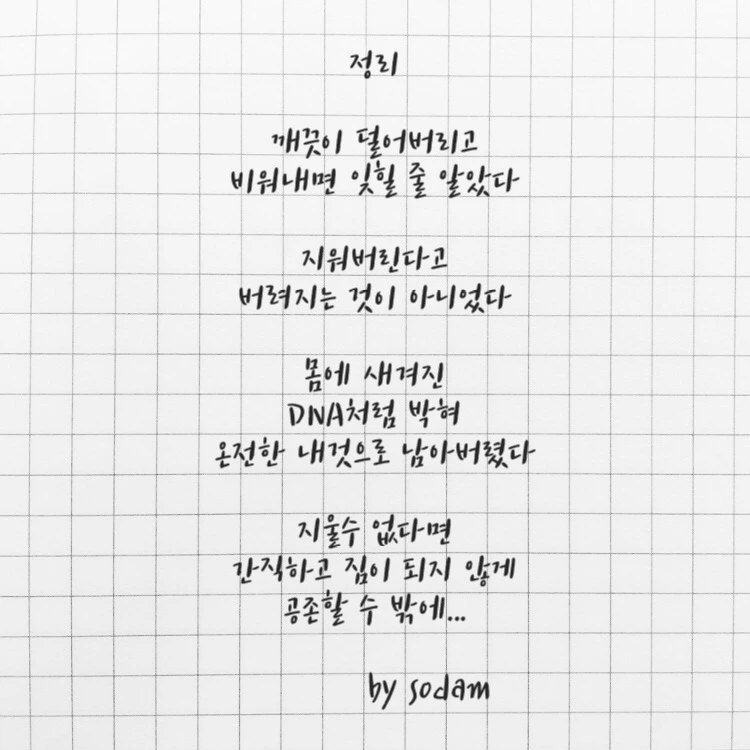 정리
깨끗이 덜어버리고
비워내면 잊힐 줄 알았다
지워버린다고
버려지는 것이 아니었다
몸에 새겨진
DNA처럼 박혀
온전한 내것으로 남아버렸다
지울수 없다면
간직하고 짐이 되지 않게
공존할 수 밖에...
by sodam